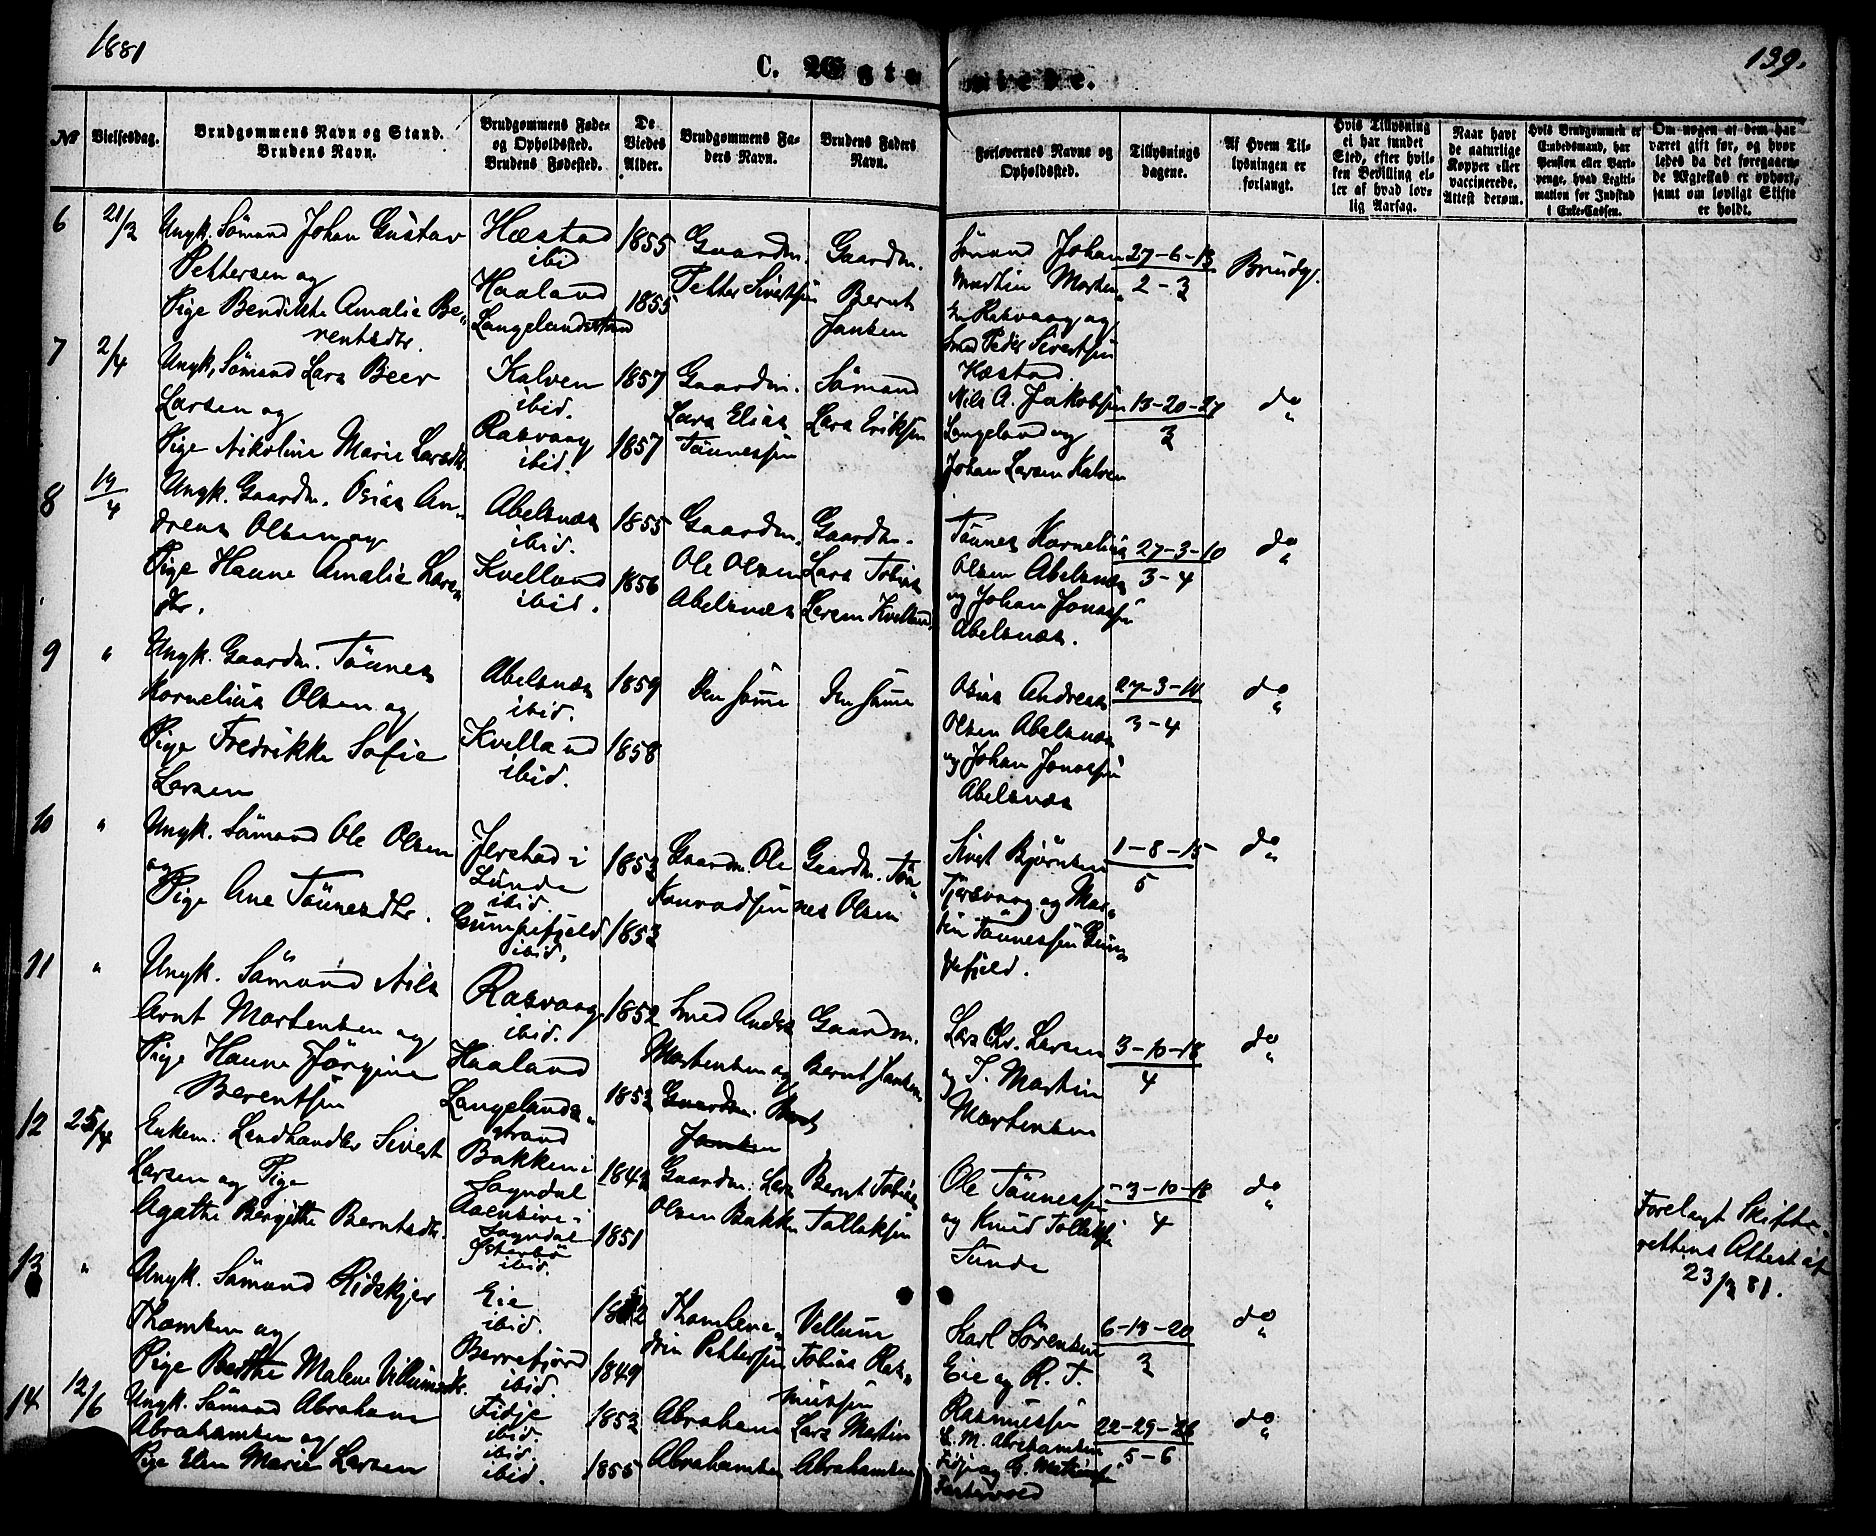 1881
139.
C. Ægteviede.
№
Vielsesdag.
Brudgommens Navn og Stand.
Brudens Navn.
Brudgommens Føde-
og Opholdssted.
Brudens Fødested.
De
Viedes
Alder.
Brudgommens Fa-
ders Navn.
Brudens Faders
Navn.
Forlovernes Navne og
Opholdssted.
Tillysnings
dagene.
Af Hvem Til-
lysningen er
forlangt.
Hvis Tillysning
ei har fundet
Sted, efter hvil-
ken Bevilling el-
ler af hvad lov-
lig Aarsag.
Naar havt
de naturlige
Kopper eller
vaccinerede.
Attest derom.
Hvis Brudgommen er
Embedsmand, har
Pension eller Vart-
penge, hvad Legiti-
mation for Indskud
i Enke-Cassen.
Om nogen af dem har
været gift før, og hvor
ledes da det foregaaen-
de Ægteskab er ophørt,
samt om lovligt Skifte
er holdt.
6
21/3
Ungk. Sømand Johan Gustav
Pettersen og
Pige Bendikte Amalie Be-
rentsdtr.
Hæstad
ibid
Haaland
Langelandstrand
1855
1855
Gaardm.
Petter Sivertsen
Gaardm.
Bernt
Jansen
Sømand Johan
Martin Morten-
sen Rasvaag og
Smed Peder Sivertsen
Hæstad
27-6-13
2-3
Brudg.
7
2/4
Ungk. Sømand Lars Beer
Larsen og
Pige Nikoline Marie Larsdtr.
Kalven
ibid.
Rasvaag
ibid.
1857
1857
Gaardm.
Lars Elias
Tønnessen
Sømand
Lars Eriksen
Nils A. Jakobsen
Langeland og
Johan Larsen Kalven
13-20-27
3
do
8
19/4
Ungk. Gaardm. Osias An-
dreas Olsen og
Pige Hanne Amalie Lars-
dtr.
Abelsnæs
ibid.
Kvelland
ibid.
1855
1856
Gaardm.
Ole Olsen
Abelsnæs
Gaardm.
Lars Tobias
Larsen Kvelland
Tønnes Kornelius
Olsen Abelsnæs
og Johan Jonassen
Abelsnæs.
27-3-10
3-4
do
9
"
Ungk. Gaardm. Tønnes
Kornelius Olsen og
Pige Fredrikke Sofie
Larsen
Abelsnæs
ibid.
Kvelland
ibid.
1859
1858
Den samme
Den samme
Osias Andreas
Olsen Abelsnæs
og Johan Jonassen
Abelsnæs
27-3-10
3-4
do
10
"
Ungk. Sømand Ole Olsen
og
Pige Ane Tønnesdtr.
Jerstad i
Lunde
ibid.
Gumpefjeld
ibid.
1853
1853
Gaardm. Ole
Konradsen
Gaardm. Tøn-
nes Olsen
Sivert Bjørnsen
Tjørsvaag og Mar-
tin Tønnessen Gum-
pefjeld.
1-8-15
5
do
11
"
Ungk. Sømand Nils
Arnt Mortensen og
Pige Hanne Jørgine
Berentsen
Rasvaag
ibid.
Haaland
Langelands-
strand
1852
1853
Smed Anders
Mortensen og
Gaardm. Bernt
Jansen
Gaardm.
Bernt Jansen
Lars Chr. Larsen
og T. Martin
Mortensen
3-10-18
4
do
12
25/4
Enkem. Landhandler Sivert
Larsen og Pige
Agathe Bergitte Berntsdtr.
Bakken i
Sogndal
Aaensire i
Sogndal
Østerbø
ibid.
1842
1851
Gaardm. Lars
Olsen Bakken
Bernt Tobias
Tollaksen
Ole Tønnessen
og Knud Tollaksen
Sunde
3-10-18
4
do
Forelagt Skifte-
rettens Attest af
23/3 81.
13
"
Ungk. Sømand Eidskjer
Thomsen og
Pige Berthe Malene Villumsdtr.
Eie
ibid.
Berrefjord
ibid.
1852
1849
Vellum
Tobias Ras-
mussen
Karl Sørensen
Eie og R. T.
Rasmussen
6-13-20
3
do
14
12/6
Ungk. Sømand Abraham
Abrahamsen og
Pige Elen Marie Larsen
Fidje
ibid.
ibid.
ibid.
1853
1855
Abraham
Abrahamsen
Lars Martin
Abrahamsen
L. M. Abrahamsen
22-29-26
5-6
do